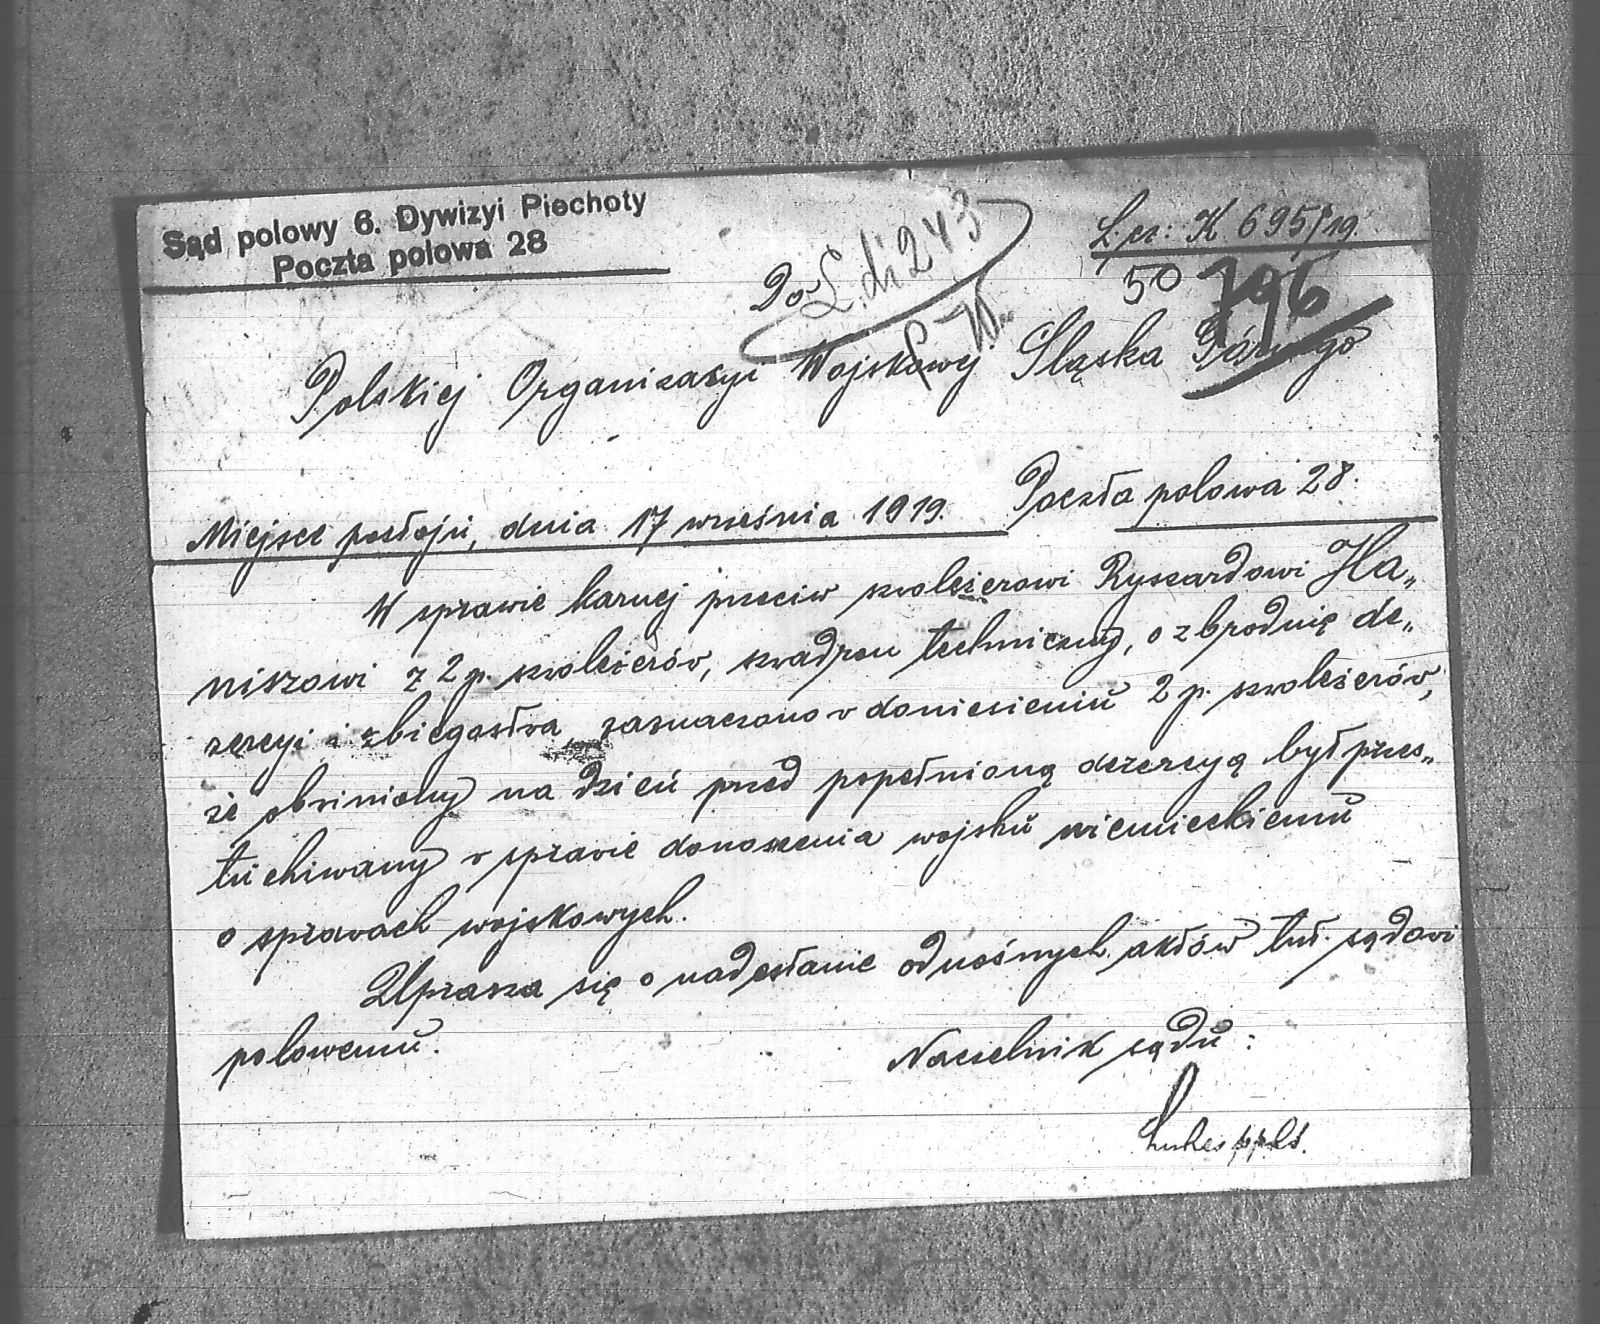 Sąd polowy 6. Dywizyi Piechoty
Poczta polowa 28
L. cz: K 695/19.
50 796
Do L. di 243
Polskiej Organizacyi Wojskowej Śląska Górnego
Poczta polowa 28.
Miejsce postoju, dnia 17 września 1919.
W sprawie karnej przeciw szwoleżerowi Ryszardowi Ha„
niszowi z 2 p. szwoleżerów, szwadron techniczny, o zbrodnię de„
zercyi i zbiegostwa, zaznaczono w doniesieniu 2 p. szwoleżerów,
że obwiniony na dzień przed popełnioną dezercyą był przes„
łuchiwany w sprawie donoszenia wojsku niemieckiemu
o sprawach wojskowych.
Uprasza się o nadesłanie odnośnych aktów tut. sądowi
polowemu.
Naczelnik sądu: